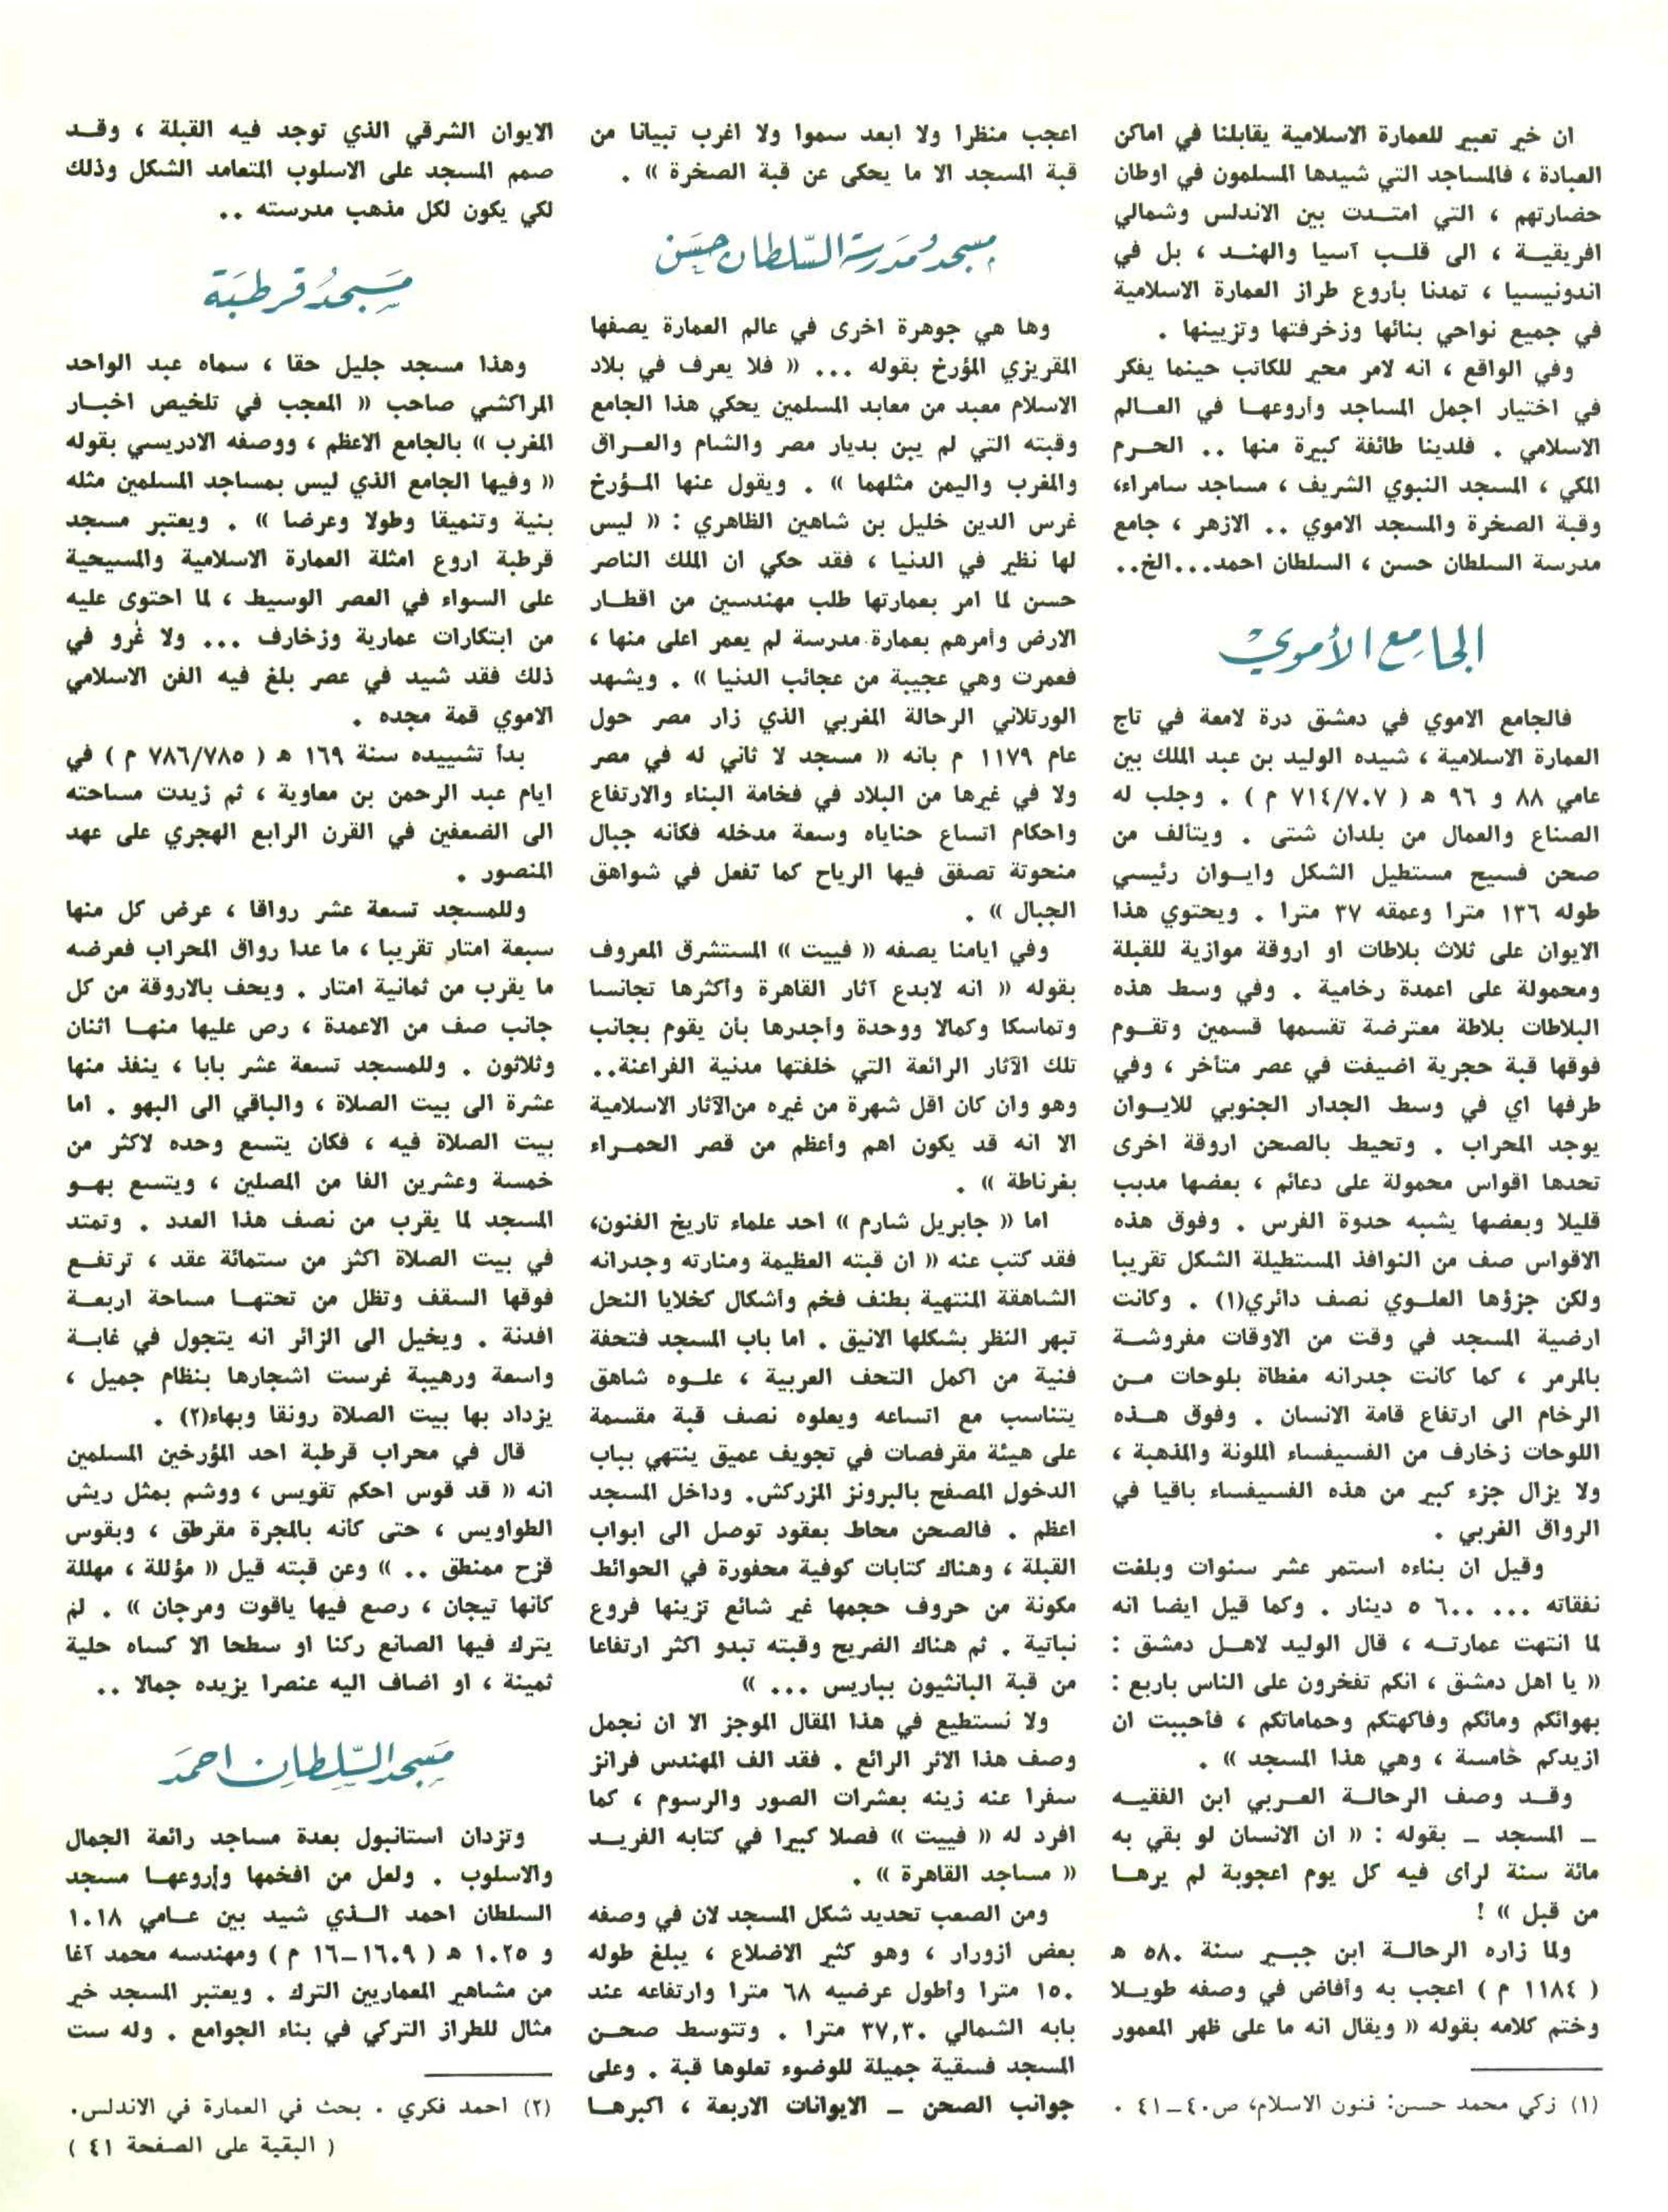 ان خير تعبير للعمارة الاسلامية يقابلنا في اماكن
العبادة ، فالمساجد التي شيدها المسلمون في اوطان
حضارتهم ، التي امتــدت بين الاندلس وشمالي
افريقيــة ، الى قلــب آسيا والهنــد ، بل في
اندونيسيا ، تمدنا بأروع طراز العمارة الاسلامية
في جميع نواحي بنائها وزخرفتها وتزيينها .
وفي الواقع ، انه لامر محير للكاتب حينما يفكر
في اختيار اجمل المساجد وأروعهــا في العــالم
الاسلامي . فلدينا طائفة كبيرة منها .. الحــرم
المكي ، المسجد النبوي الشريف ، مساجد سامراء،
وقبة الصخرة والمسجد الاموي .. الازهر ، جامع
مدرسة السلطان حسن ، السلطان احمد...الخ..
الجامع الأموي
فالجامع الاموي في دمشق درة لامعة في تاج
العمارة الاسلامية ، شيده الوليد بن عبد الملك بين
عامي ٨٨ و ٩٦ هـ ( ٧٠٧/٧١٤ م ) . وجلب له
الصناع والعمال من بلدان شتى . ويتألف من
صحن فسيح مستطيل الشكل وايــوان رئيسي
طوله ١٣٦ مترا وعمقه ٣٧ مترا . ويحتوي هذا
الايوان على ثلاث بلاطات او اروقة موازية للقبلة
ومحمولة على اعمدة رخامية . وفي وسط هذه
البلاطات بلاطة معترضة تقسمها قسمين وتقــوم
فوقها قبة حجرية اضيفت في عصر متأخر ، وفي
طرفها اي في وسط الجدار الجنوبي للايــوان
يوجد المحراب . وتحيط بالصحن اروقة اخرى
تحدها اقواس محمولة على دعائم ، بعضها مدبب
قليلا وبعضها يشبه حدوة الفرس . وفوق هذه
الاقواس صف من النوافذ المستطيلة الشكل تقريبا
ولكن جزؤها العلــوي نصف دائري(١) . وكانت
ارضية المسجد في وقت من الاوقات مفروشــة
بالمرمر ، كما كانت جدرانه مغطاة بلوحات مــن
الرخام الى ارتفاع قامة الانسان . وفوق هــذه
اللوحات زخارف من الفسيفساء الملونة والمذهبة ،
ولا يزال جزء كبير من هذه الفسيفساء باقيا في
الرواق الغربي .
وقيل ان بناءه استمر عشر سنوات وبلغت
نفقاته ٠٠٠ ٦٠٠ ٥ دينار . وكما قيل ايضا انه
لما انتهت عمارتــه ، قال الوليد لاهــل دمشق :
« يا اهل دمشق ، انكم تفخرون على الناس باربع :
بهوائكم ومائكم وفاكهتكم وحماماتكم ، فأحببت ان
ازيدكم خامسة ، وهي هذا المسجد » .
وقــد وصف الرحالــة العــربي ابن الفقيــه
– المسجد – بقوله : « ان الانسان لو بقي به
مائة سنة لرأى فيه كل يوم اعجوبة لم يرهــا
من قبل » !
ولما زاره الرحالــة ابن جبــير سنة ٥٨٠ هـ
( ١١٨٤ م ) اعجب به وأفاض في وصفه طويــلا
وختم كلامه بقوله « ويقال انه ما على ظهر المعمور
(١) زكي محمد حسن: فنون الاسلام، ص٤٠–٤١ .
اعجب منظرا ولا ابعد سموا ولا اغرب تبيانا من
قبة المسجد الا ما يحكى عن قبة الصخرة » .
مسجد ومدرسة السلطان حسن
وها هي جوهرة اخرى في عالم العمارة يصفها
المقريزي المؤرخ بقوله ... « فلا يعرف في بلاد
الاسلام معبد من معابد المسلمين يحكي هذا الجامع
وقبته التي لم يبن بديار مصر والشام والعــراق
والمغرب واليمن مثلهما » . ويقول عنها المــؤرخ
غرس الدين خليل بن شاهين الظاهري : « ليس
لها نظير في الدنيا ، فقد حكي ان الملك الناصر
حسن لما امر بعمارتها طلب مهندسين من اقطــار
الارض وأمرهم بعمارة مدرسة لم يعمر اعلى منها ،
فعمرت وهي عجيبة من عجائب الدنيا » . ويشهد
الورتلاني الرحالة المغربي الذي زار مصر حول
عام ١١٧٩ م بانه « مسجد لا ثاني له في مصر
ولا في غيرها من البلاد في فخامة البناء والارتفاع
واحكام اتساع حناياه وسعة مدخله فكأنه جبال
منحوتة تصفق فيها الرياح كما تفعل في شواهق
الجبال » .
وفي ايامنا يصفه « فييت » المستشرق المعروف
بقوله « انه لابدع آثار القاهرة وأكثرها تجانسا
وتماسكا وكمالا ووحدة وأجدرها بأن يقوم بجانب
تلك الآثار الرائعة التي خلفتها مدنية الفراعنة..
وهو وان كان اقل شهرة من غيره من الآثار الاسلامية
الا انه قد يكون اهم وأعظم من قصر الحمــراء
بغرناطة » .
اما « جابريل شارم » احد علماء تاريخ الفنون،
فقد كتب عنه « ان قبته العظيمة ومنارته وجدرانه
الشاهقة المنتهية بطنف فخم وأشكال كخلايا النحل
تبهر النظر بشكلها الانيق . اما باب المسجد فتحفة
فنية من اكمل التحف العربية ، علــوه شاهق
يتناسب مع اتساعه ويعلوه نصف قبة مقسمة
على هيئة مقرفصات في تجويف عميق ينتهي بباب
الدخول المصفح بالبرونز المزركش. وداخل المسجد
اعظم . فالصحن محاط بعقود توصل الى ابواب
القبلة ، وهناك كتابات كوفية محفورة في الحوائط
مكونة من حروف حجمها غير شائع تزينها فروع
نباتية . ثم هناك الضريح وقبته تبدو اكثر ارتفاعا
من قبة البانثيون بباريس ... »
ولا نستطيع في هذا المقال الموجز الا ان نجمل
وصف هذا الاثر الرائع . فقد الف المهندس فرانز
سفرا عنه زينه بعشرات الصور والرسوم ، كما
افرد له « فييت » فصلا كبيرا في كتابه الفريــد
« مساجد القاهرة » .
ومن الصعب تحديد شكل المسجد لان في وصفه
بعض ازورار ، وهو كثير الاضلاع ، يبلغ طوله
١٥٠ مترا وأطول عرضيه ٦٨ مترا وارتفاعه عند
بابه الشمالي ٣٧,٣٠ مترا . وتتوسط صحــن
المسجد فسقية جميلة للوضوء تعلوها قبة . وعلى
جوانب الصحن – الايوانات الاربعة ، اكبرهــا
الايوان الشرقي الذي توجد فيه القبلة ، وقــد
صمم المسجد على الاسلوب المتعامد الشكل وذلك
لكي يكون لكل مذهب مدرسته ..
مسجد قرطبة
وهذا مسجد جليل حقا ، سماه عبد الواحد
المراكشي صاحب « المعجب في تلخيص اخبــار
المغرب » بالجامع الاعظم ، ووصفه الادريسي بقوله
« وفيها الجامع الذي ليس بمساجد المسلمين مثله
بنية وتنميقا وطولا وعرضا » . ويعتبر مسجد
قرطبة اروع امثلة العمارة الاسلامية والمسيحية
على السواء في العصر الوسيط ، لما احتوى عليه
من ابتكارات عمارية وزخارف ... ولا غرو في
ذلك فقد شيد في عصر بلغ فيه الفن الاسلامي
الاموي قمة مجده .
بدأ تشييده سنة ١٦٩ هـ ( ٧٨٥/٧٨٦ م ) في
ايام عبد الرحمن بن معاوية ، ثم زيدت مساحته
الى الضعفين في القرن الرابع الهجري على عهد
المنصور .
وللمسجد تسعة عشر رواقا ، عرض كل منها
سبعة امتار تقريبا ، ما عدا رواق المحراب فعرضه
ما يقرب من ثمانية امتار . ويحف بالاروقة من كل
جانب صف من الاعمدة ، رص عليها منهــا اثنان
وثلاثون . وللمسجد تسعة عشر بابا ، ينفذ منها
عشرة الى بيت الصلاة ، والباقي الى البهو . اما
بيت الصلاة فيه ، فكان يتسع وحده لاكثر من
خمسة وعشرين الفا من المصلين ، ويتسع بهــو
المسجد لما يقرب من نصف هذا العدد . وتمتد
في بيت الصلاة اكثر من ستمائة عقد ، ترتفــع
فوقها السقف وتظل من تحتهــا مساحة اربعــة
افدنة . ويخيل الى الزائر انه يتجول في غابــة
واسعة ورهيبة غرست اشجارها بنظام جميل ،
يزداد بها بيت الصلاة رونقا وبهاء(٢) .
قال في محراب قرطبة احد المؤرخين المسلمين
انه « قد قوس احكم تقويس ، ووشم بمثل ريش
الطواويس ، حتى كأنه بالمجرة مقرطق ، وبقوس
قزح ممنطق .. » وعن قبته قيل « مؤللة ، مهللة
كأنها تيجان ، رصع فيها ياقوت ومرجان » . لم
يترك فيها الصانع ركنا او سطحا الا كساه حلية
ثمينة ، او اضاف اليه عنصرا يزيده جمالا ..
مسجد السلطان احمد
وتزدان استانبول بعدة مساجد رائعة الجمال
والاسلوب . ولعل من افخمها وأروعهــا مسجد
السلطان احمد الــذي شيد بين عــامي ١٠١٨
و ١٠٢٥ هـ ( ١٦٠٩–١٦ م ) ومهندسه محمد آغا
من مشاهير المعماريين الترك . ويعتبر المسجد خير
مثال للطراز التركي في بناء الجوامع . وله ست
(٢) احمد فكري . بحث في العمارة في الاندلس.
( البقية على الصفحة ٤١ )